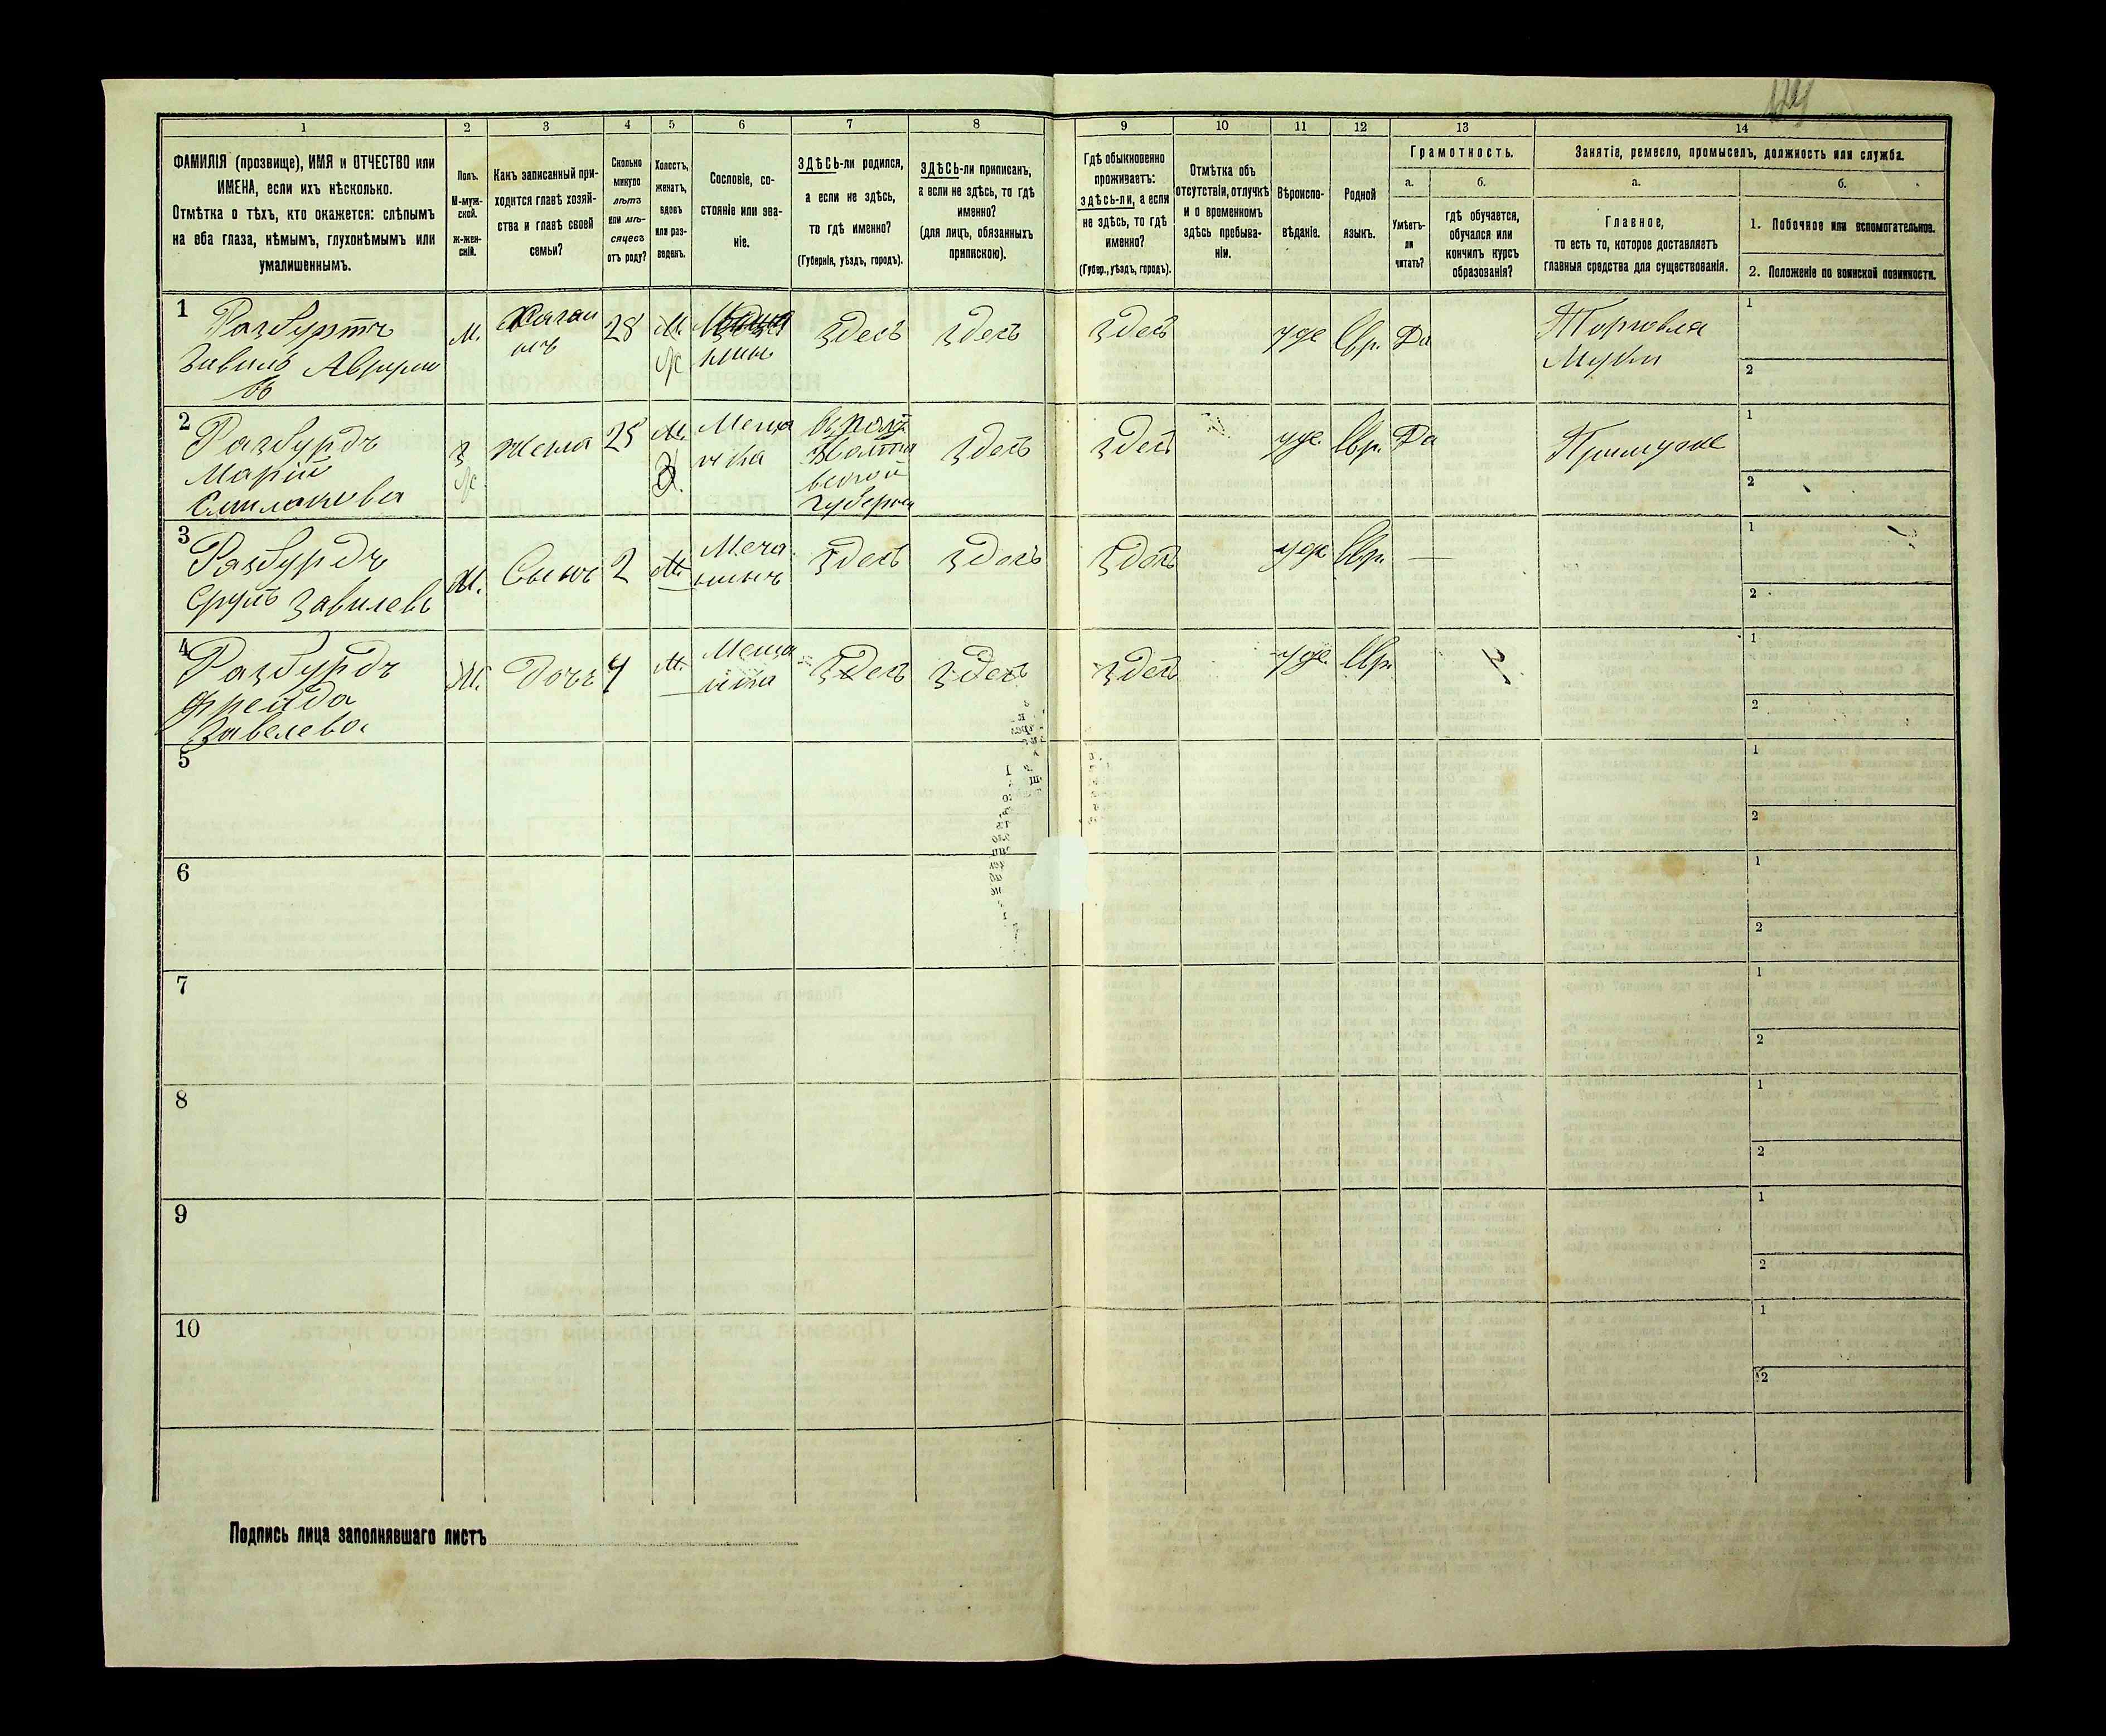 124
1
2
3
4
5
6
7
8
9
10
11
12
13
14
ФАМИЛІЯ (прозвище), ИМЯ и ОТЧЕСТВО или
ИМЕНА, если ихъ нѣсколько.
Отмѣтка о тѣхъ, кто окажется: слѣпымъ
на оба глаза, нѣмымъ, глухонѣмымъ или
умалишеннымъ.
Полъ.
М-муж-
ской.
ж-жен-
скій.
Какъ записанный при-
ходится главѣ хозяй-
ства и главѣ своей
семьи?
Сколько
минуло
лѣтъ
или мѣ-
сяцевъ
отъ роду?
Холостъ,
женатъ,
вдовъ
или раз-
веденъ.
Сословіе, со-
стояніе или зва-
ніе.
ЗДѢСЬ-ли родился,
а если не здѣсь,
то гдѣ именно?
(Губернія, уѣздъ, городъ).
ЗДѢСЬ-ли приписанъ,
а если не здѣсь, то гдѣ
именно?
(для лицъ, обязанныхъ
припискою).
Гдѣ обыкновенно
проживаетъ:
здѣсь-ли, а если
не здѣсь, то гдѣ
именно?
(Губер., уѣздъ, городъ).
Отмѣтка объ
отсутствіи, отлучкѣ
и о временномъ
здѣсь пребыва-
ніи.
Вѣроиспо-
вѣданіе.
Родной
языкъ.
Грамотность.
а.
Умѣетъ-
ли
читать?
б.
гдѣ обучается,
обучался или
кончилъ курсъ
образованія?
Занятіе, ремесло, промыселъ, должность или служба.
а.
Главное,
то есть то, которое доставляетъ
главныя средства для существованія.
б.
1. Побочное или вспомогательное.
2. Положеніе по воинской повинности.
1
Разбуртъ
Завиль Аврум
въ
М.
28
М.
Ж
нинъ
Здесь
Здесь
Здесь
Іуде
Евр.
Да
Торговля
Муки
1
2
2
Разбурдъ
Марія
Смилонова
Ж
Жена
25
М.
Меща
нка
губерни
Здесь
Здесь
Іуде.
Евр.
Да
Примуже
1
2
3
Разбурдъ
Сруль Завилевъ
М.
Сынъ
2
М.
Меча
нинъ
Здесь
Здесь
Здесь
Іуде
Евр.
—
1
2
4
Разбурдъ
Фрейда
Завелева
Ж.
Дочь
4
М.
Меща
нка
Здесь
Здесь
Здесь
Іуде.
Евр.
1
2
5
1
2
6
1
2
7
1
2
8
1
2
9
1
2
10
1
2
Подпись лица заполнявшаго листъ